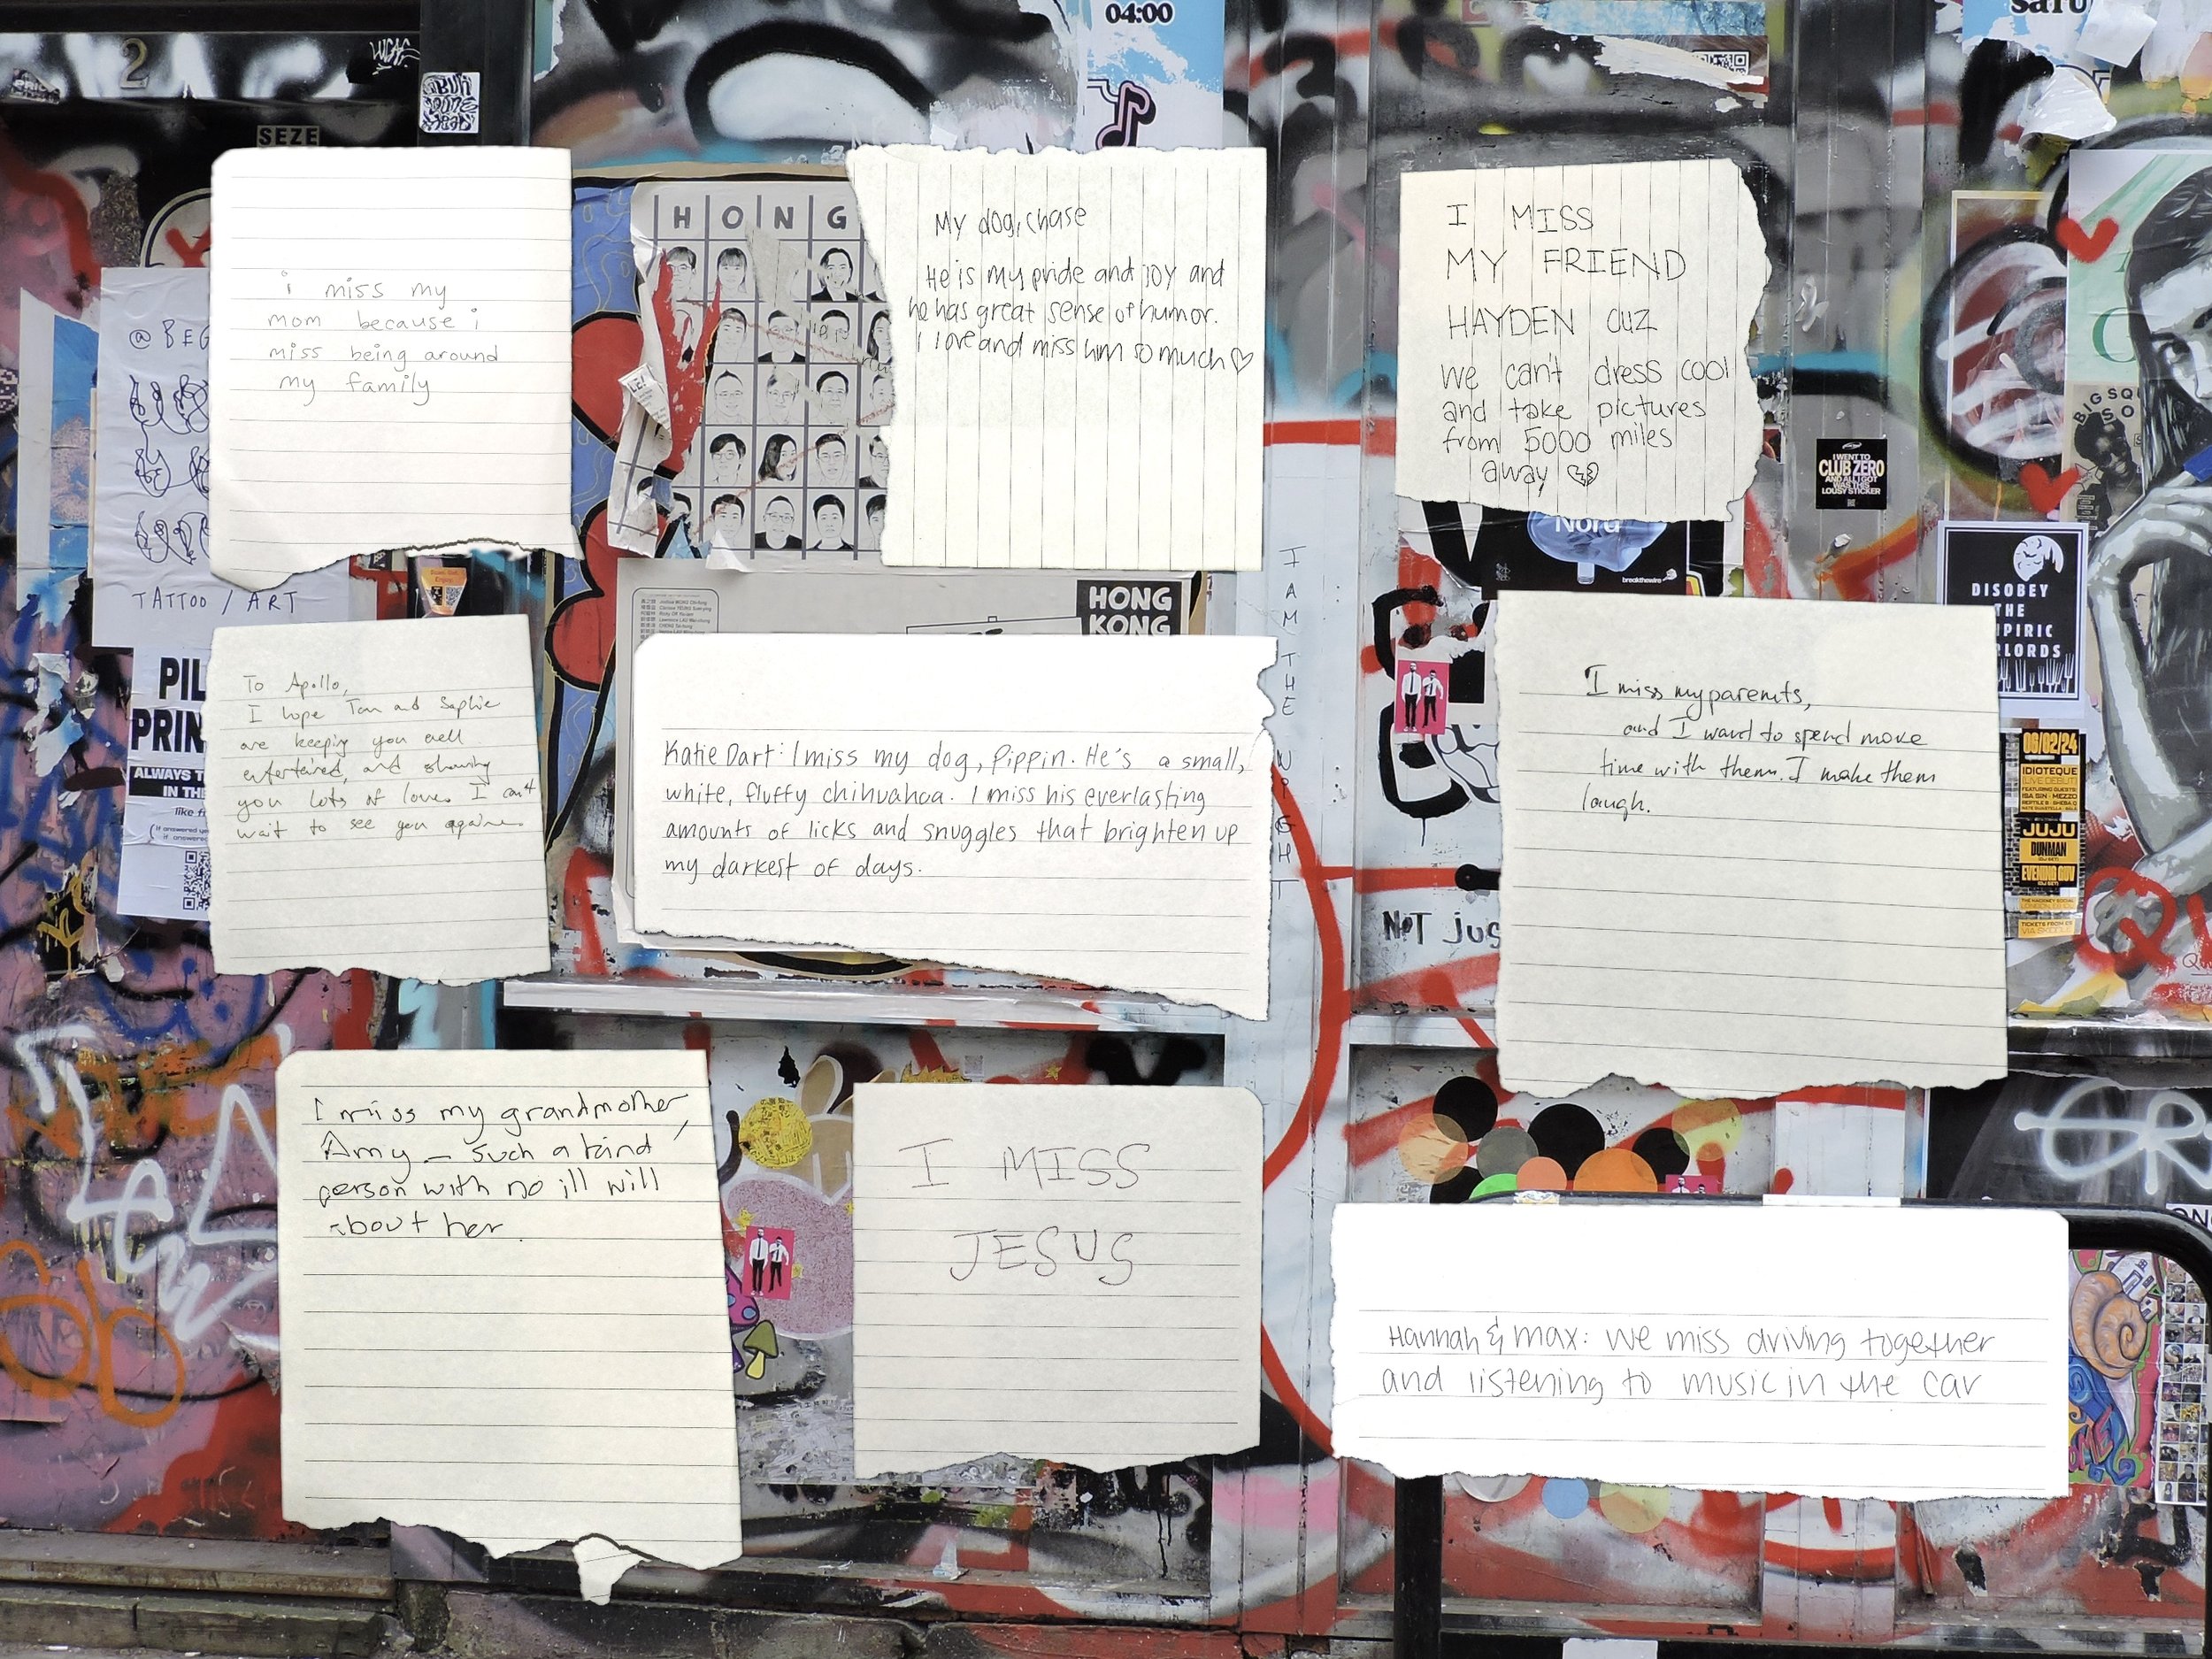 04:00
2
SEZE
i miss my
mom because i
miss being around
my family
HONG
My dog, chase
He is my pride and joy and
he has great sense of humor.
i love and miss him so much
I MISS
MY FRIEND
HAYDEN cuz
we can't dress cool
and take pictures
from 5000 miles
away
I WENT TO
CLUB ZERO
AND ALL I GOT
WAS THIS
LOUSY STICKER
@ BEG
TATTOO / ART
HONG
KONG
breakthewire
DISOBEY
THE
PIRIC
LORDS
I AM THE
PIL
PRIN
ALWAYS T
IN THE
To Apollo,
I hope Tom and Sophie
are keeping you well
entertained, and showing
you lots of love. I can't
wait to see you again.
Katie Dart: I miss my dog, Pippin. He's a small,
white, fluffy chihuahua. I miss his everlasting
amounts of licks and snuggles that brighten up
my darkest of days.
I miss my parents,
and I want to spend more
time with them. I make them
laugh.
06/02/24
IDIOTEQUE
JUJU
DUNMAN
EVENING GUV
NOT jus
I miss my grandmother,
Amy – such a kind
person with no ill will
about her.
I MISS
JESUS
Hannah & Max: We miss driving together
and listening to music in the car